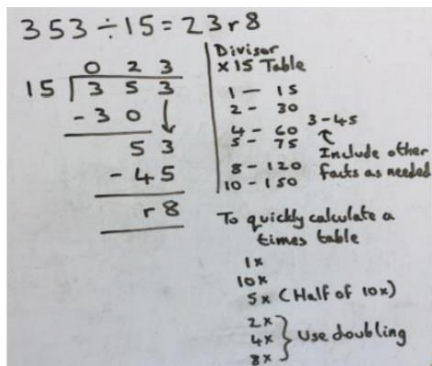 353 ÷ 15 = 23 r 8
0 2 3
15 3 5 3
- 3 0 ↓
5 3
- 4 5
r 8
Divisor
× 15 Table
1 - 15
2 - 30
3 - 45
4 - 60
5 - 75
↑
Include other
facts as needed
8 - 120
10 - 150
To quickly calculate a
times table
1x
10x
5x (Half of 10x)
2x
4x } Use doubling
8x